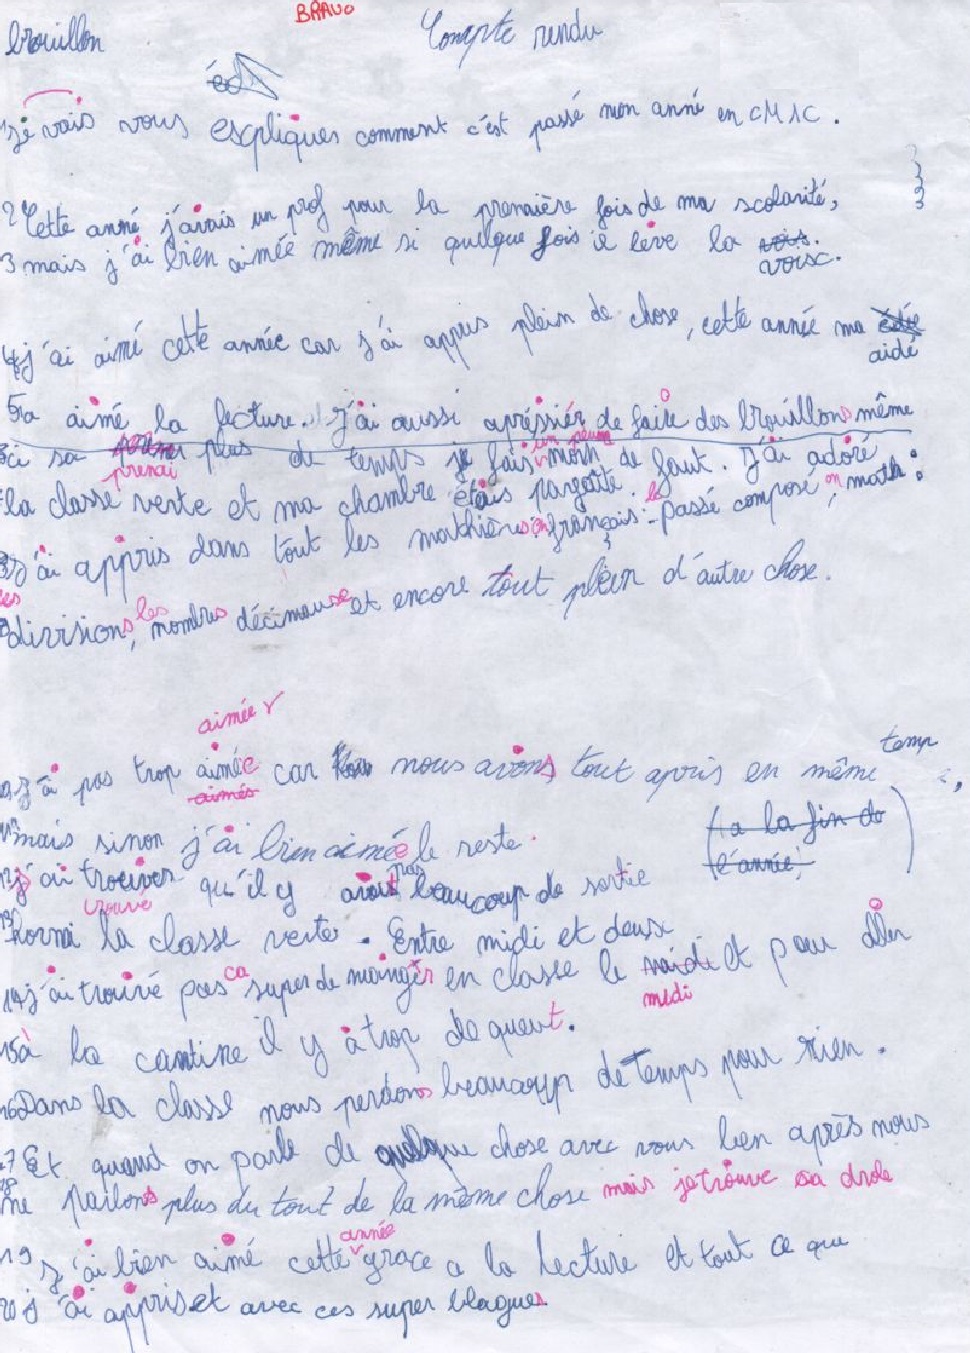 BRAVO
brouillon
Compte rendu
1 je vais vous expliques comment c'est passé mon anné en CM1C.
2 Cette anné j'avais un prof pour la première fois de ma scolarité,
3 mais j'ai bien aimée même si quelque fois il lève la vois.
voisc.
4 j'ai aimé cette année car j'ai appris plein de chose, cette année ma
aidé
5 a aimé la lecture. J'ai aussi apréssiér de faire des brouillons même
ci sa prenai plus de temps je fais un peu moin de faut. J'ai adoré
la classe verte et ma chambre étais pargaite.
8 J'ai appris dans tout les mathières: en français: le passé composé, en math:
les divisions, les nombres décimeuse et encore tout plein d'autre chose.
aimée
10 J'ai pas trop aimée car nous avons tout apris en même temp
aimés
(a la fin de
l'année)
11 mais sinon j'ai bien aimée le reste.
12 j'ai trouver qu'il y avait pas beaucoup de sortie
trouvé
13 hormi la classe verte. Entre midi et deux
14 j'ai trouvé pas ca super de manger en classe le midi et pour aller
midi
15 à la cantine il y à trop de queut.
16 Dans la classe nous perdons beaucoup de temps pour rien.
17 Et quand on parle de quelque chose avec vous bien après nous
18 ne parlons plus du tout de la même chose mais je trouve sa drole
19 J'ai bien aimé cette année grace a la lecture et tout ce que
20 j'ai appris et avec ces super blagues